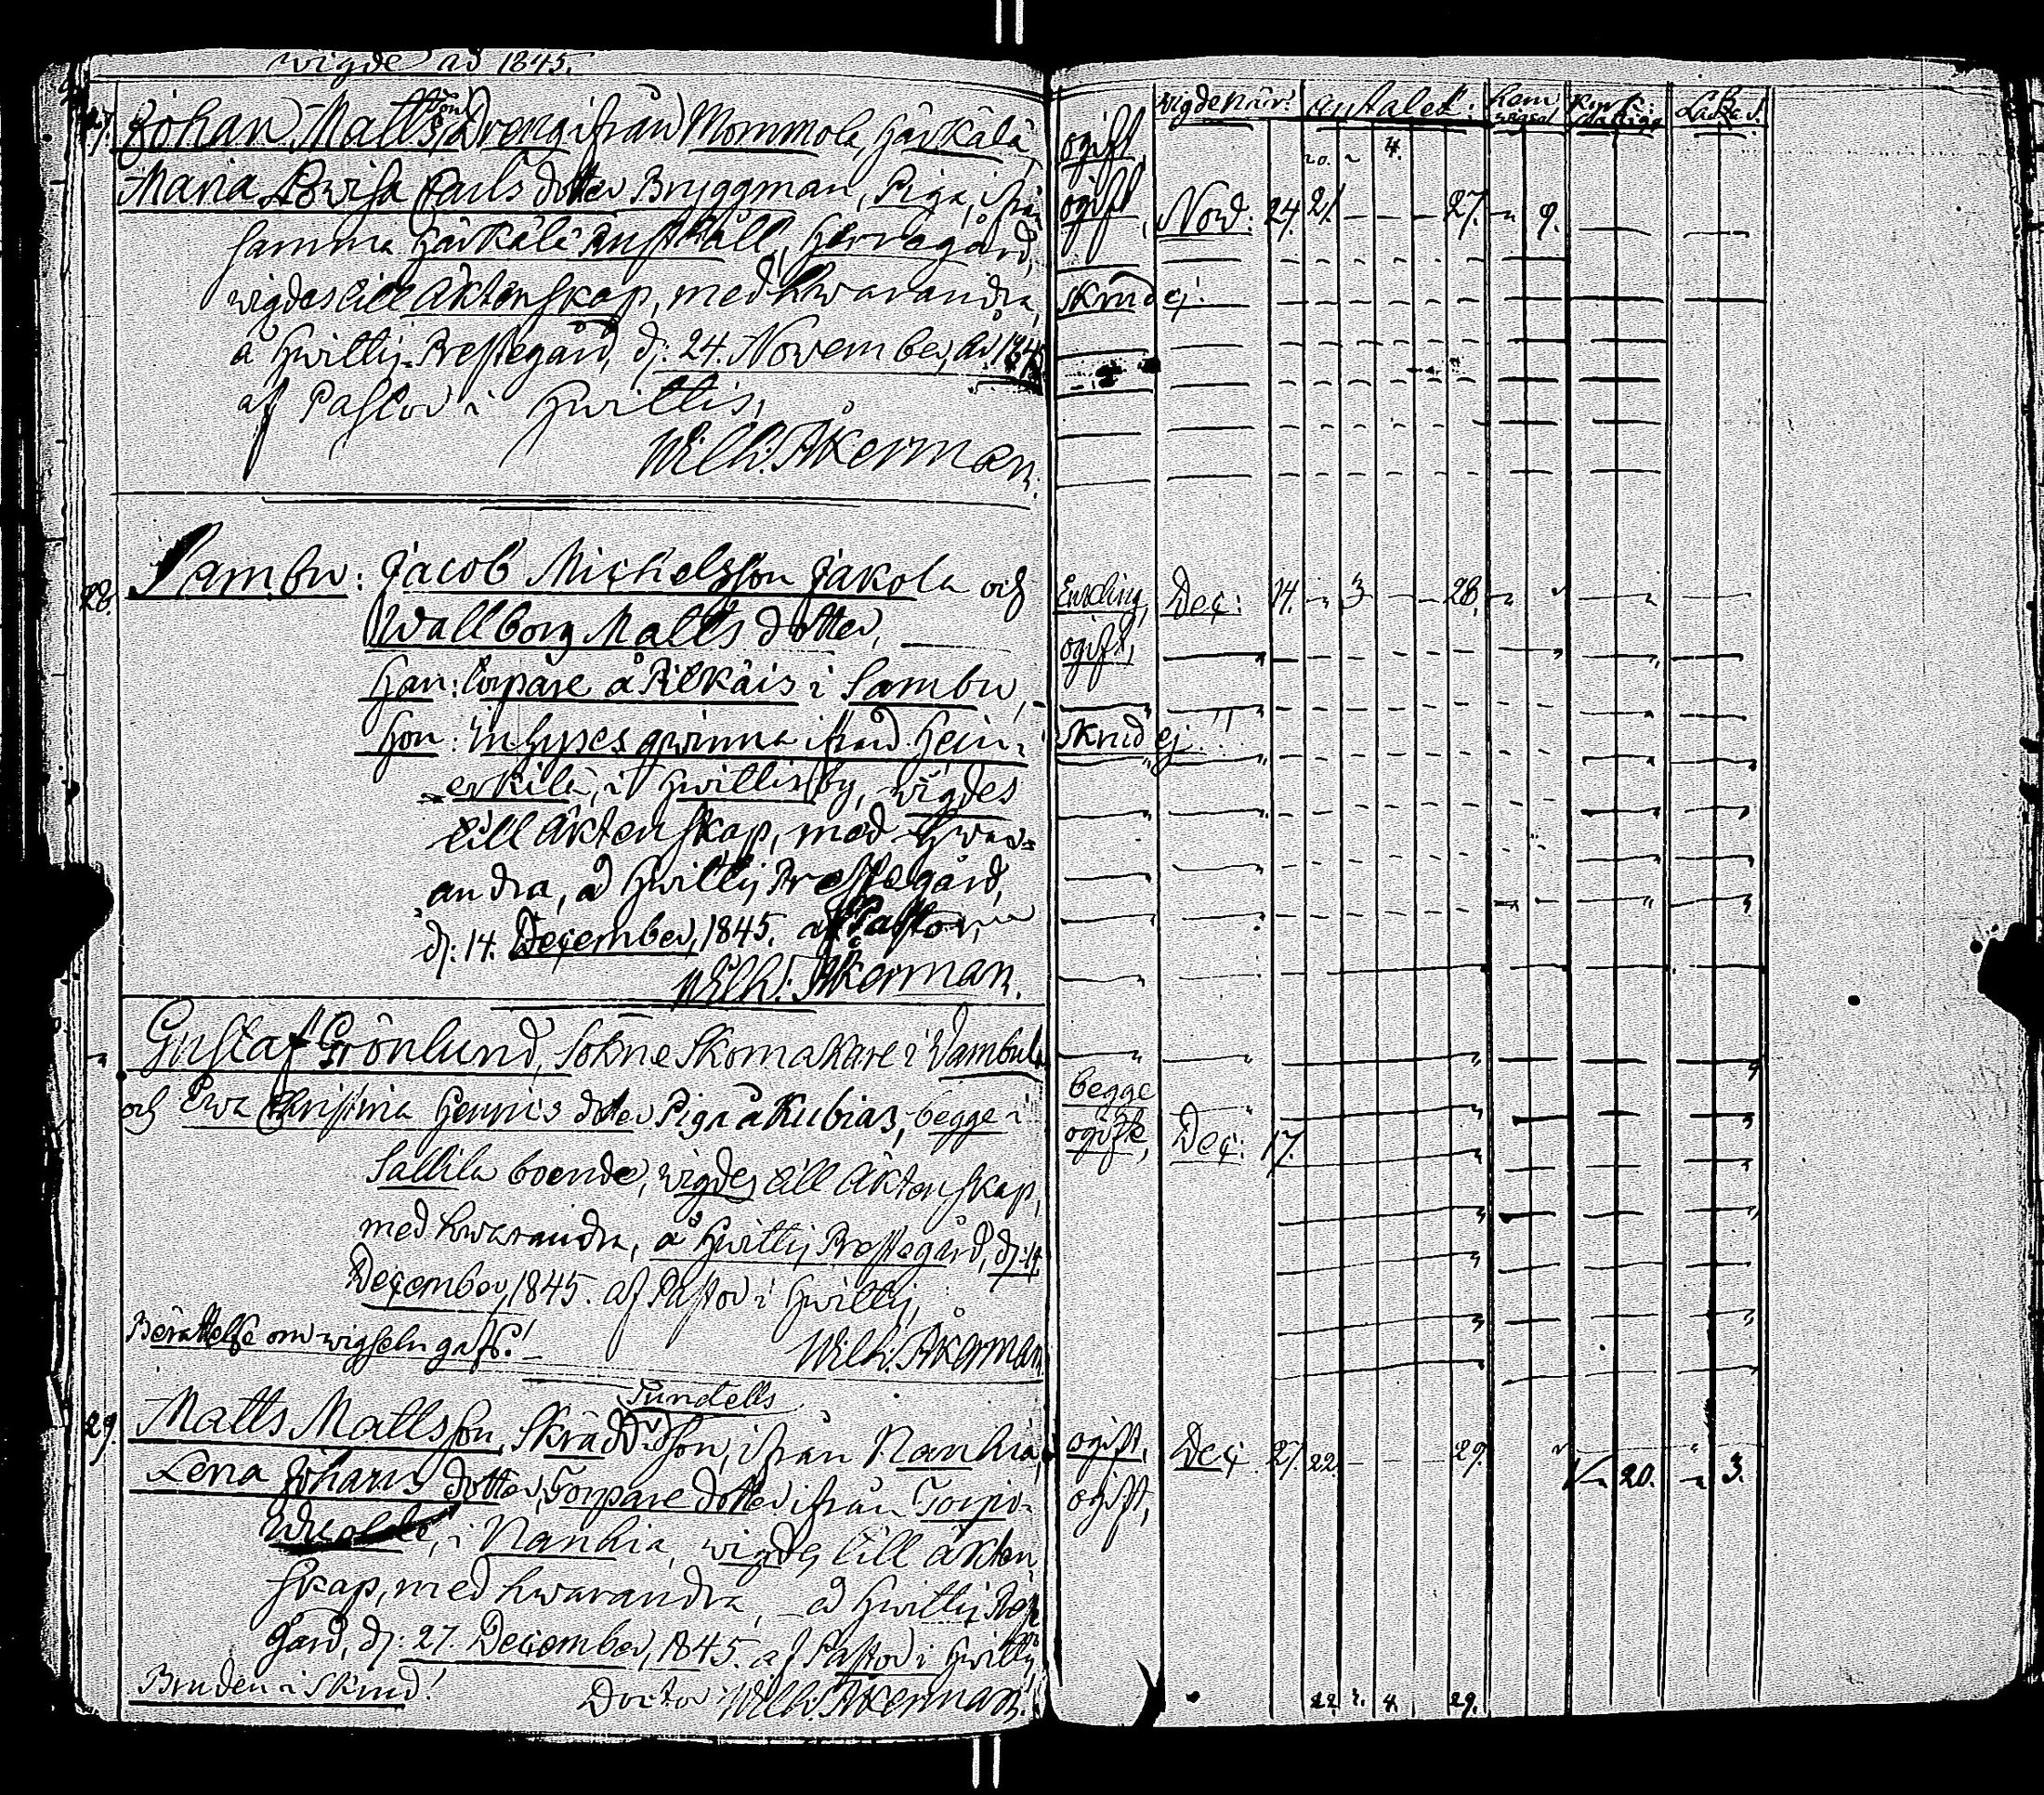 wigde år 1845.
27. Johan Matts son Dreng ifrån Mommola, Härkälä,
Maria Lovisa Carls dotter Bryggman, Piga, ifrån
samma Härkälä Rusthåll, Herregård,
wigdes till Äktenskap, med hwarandra,
å Hwittis Prestegård, d: 24. November, år 1845
af Pastor i Hwittis,
Wilh: Åkerman.
28. Sambu: Jacob Michelsson Jakola och
Wallborg Matts dotter,
Han: torpare å Pilkäis i Sambu,
Hon: Inhyses qwinna ifrån Hein=
erkilä, i Hwittisby, wigdes
till Äktenskap, med hwar=
andra, å Hwittis Prestegård,
d: 14. December, 1845. af Pastor,
Wilh: Åkerman.
Gustaf Grönlund, Sokne Skomakare i Wambula
och Ewa Christina Henrics dotter Piga å Kubias, begge i
Sallila boende, wigdes till Äktenskap,
med hwarandra, å Hwittis Prestegård, d: 14
December, 1845. af Pastor i Hwittis,
Berättelse om wigseln gafs!
Wilh: Åkerman
Sundells
29. Matts Mattsson, Skräddson, ifrån Nanhia,
Lena Johans dotter, Torpare dotter ifrån Torpi
i Nanhia, wigdes till äkten
skap, med hwarandra, å Hwittis Prest
gård, d: 27. December, 1845. af Pastor i Hwittis
Bruden i Skrud!
Doctor Wilh: Åkerman.
wigde när: antalet:
ogift 20. 4.
ogift, Nov: 24. 21. 27. 9.
Skrud ej.
Enkling, Dec: 14. 3 28.
ogift,
Skrud ej!
begge
ogifte, Dec: 17.
ogift, Dec 27. 22. 29. 20. 3.
ogift,
22. 3. 4. 29.